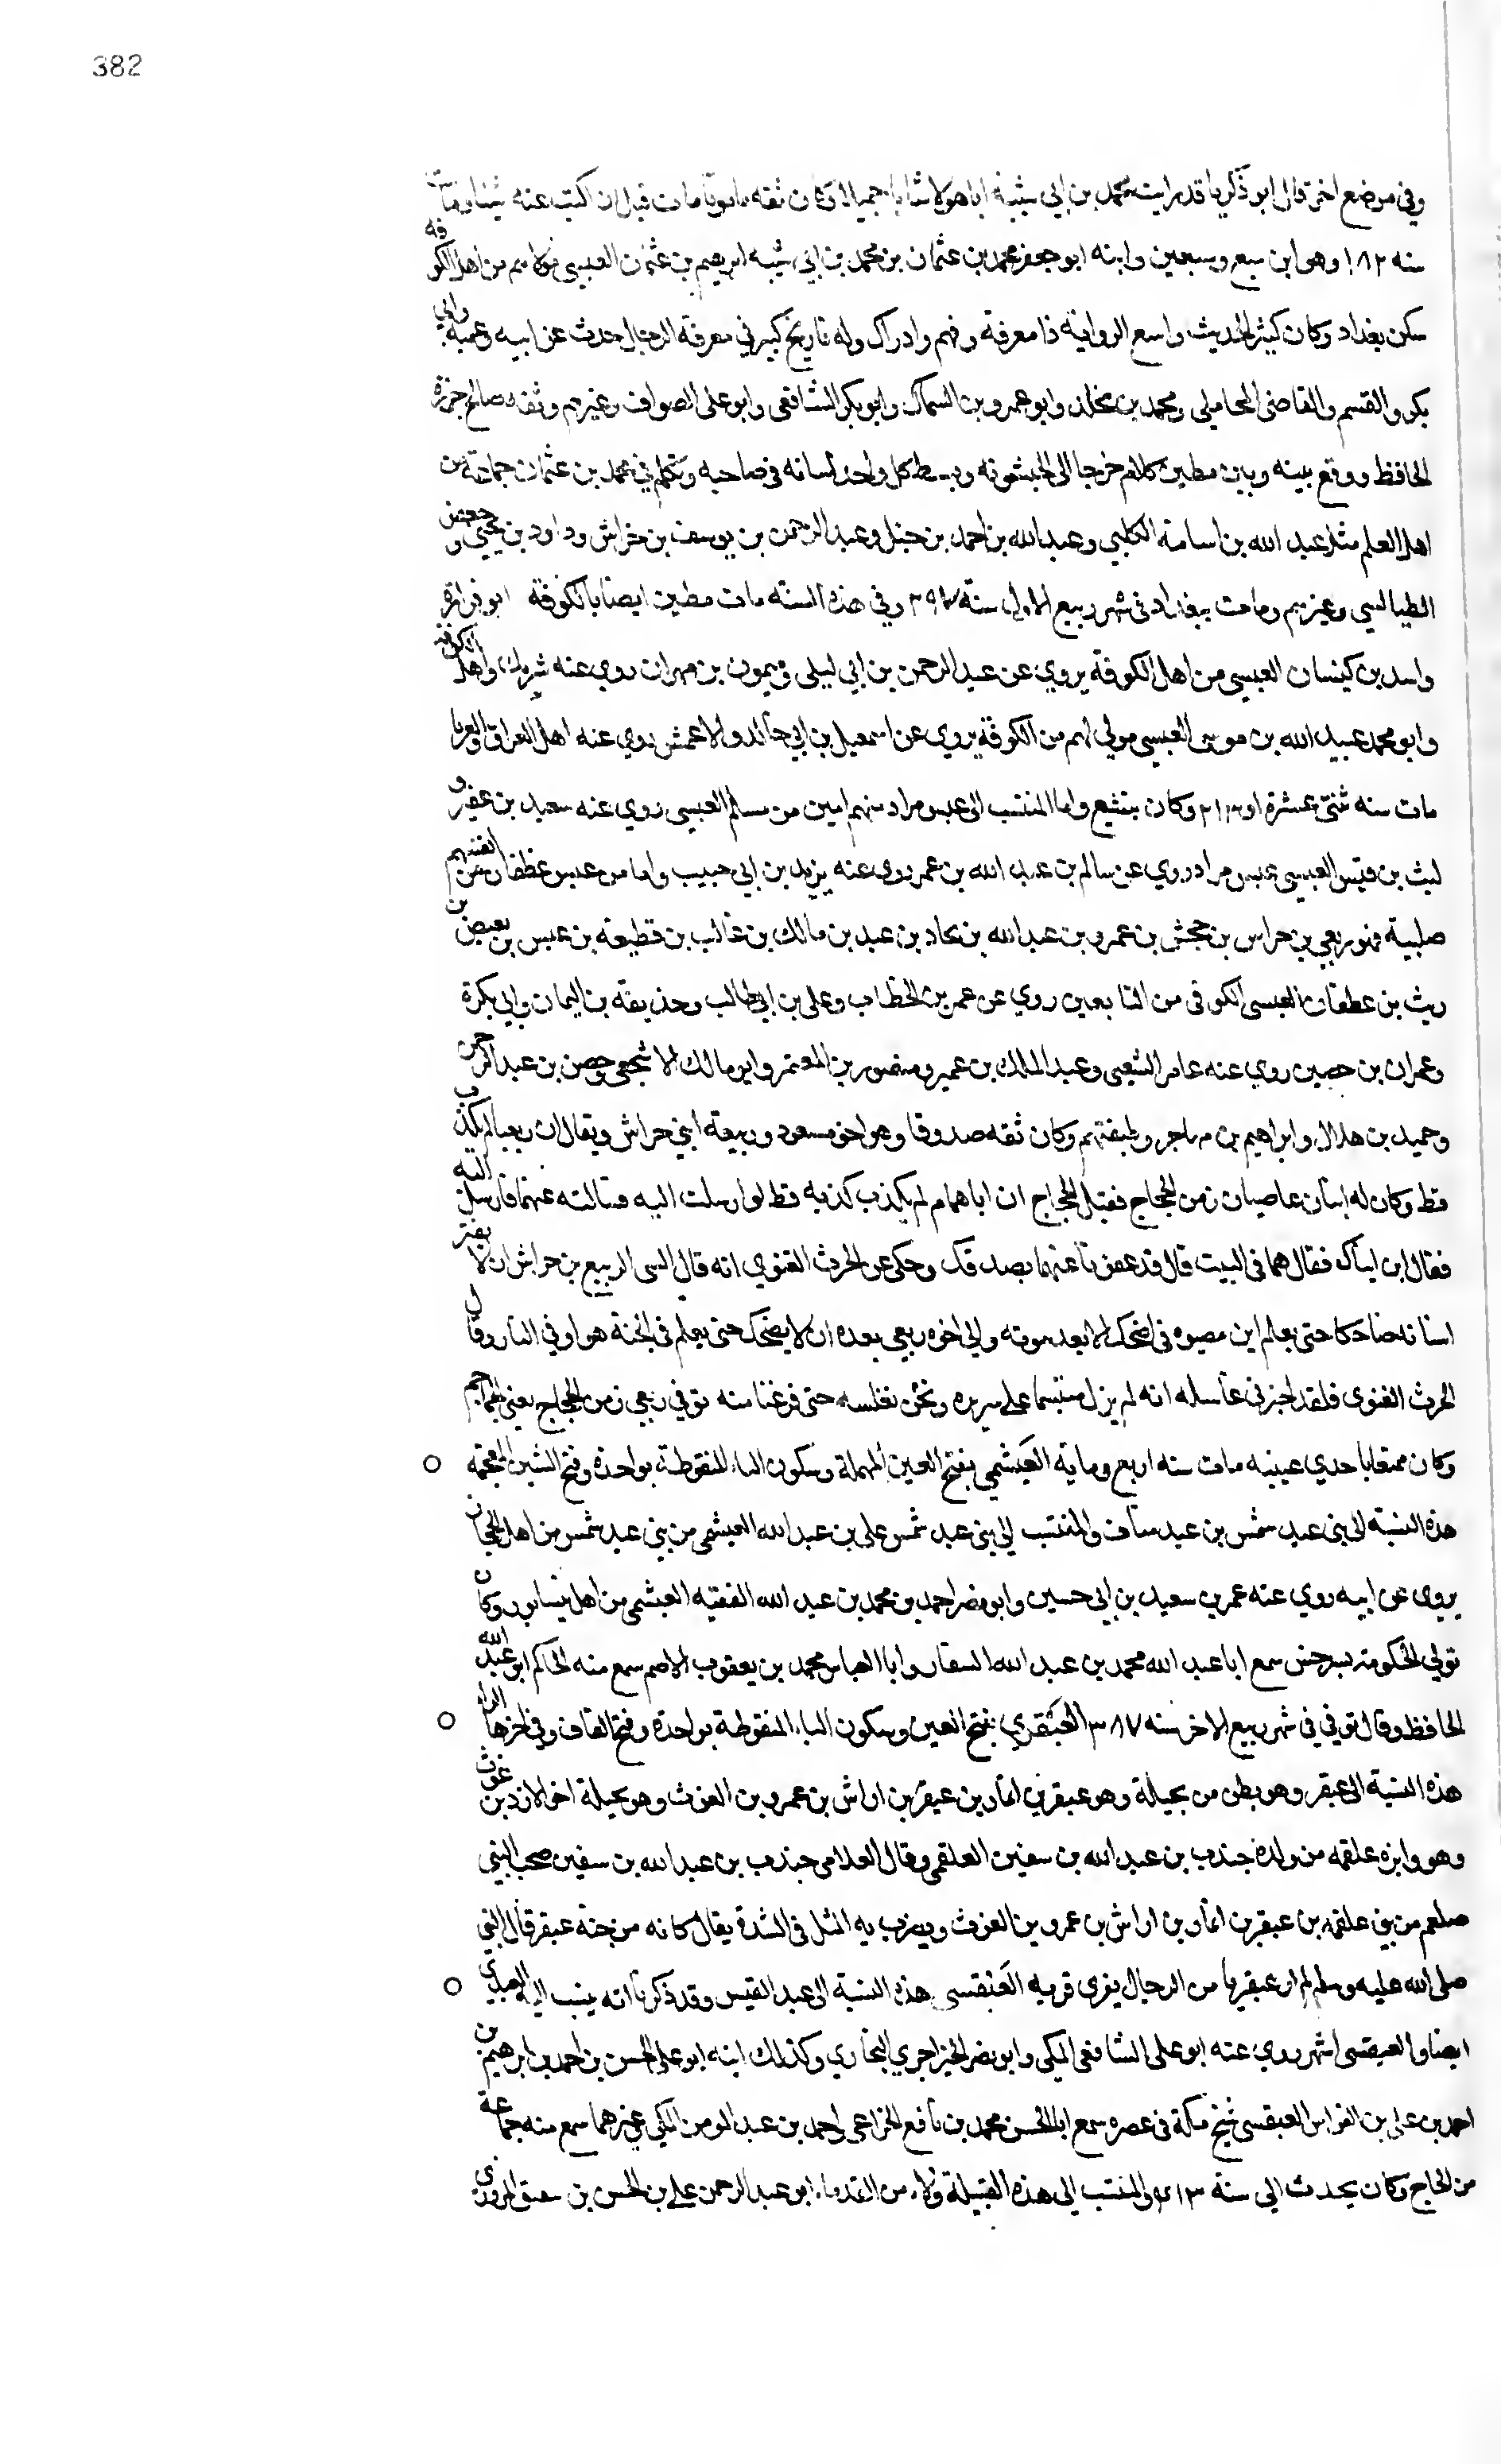 382
وفي موضع اخر قال ابو زكريا قد رايت محمد بن ابي شيبة ابا هولا شابا جميلا وكان ثقه مامونا مات قبل ان اكتب عنه شيئا ومات
سنه ١٨٢ وهو ابن سبع وسبعين وابنه ابو جعفر محمد بن عثمان بن محمد بن ابي شيبه ابرهيم بن عثمن العبسي مولاهم من اهل الكوفه
سكن بغداد وكان كثير الحديث واسع الرواية ذا معرفة وفهم وادراك وله تاريخ كبير في معرفة الرجال حدث عن ابيه وعميه ابي
بكر والقسم والقاضى المحاملى ومحمد بن مخلد وابو عمرو بن السماك وابو بكر الشافعى وابو على الصواف وغيرهم وثقه صالح جزرة
الحافظ ووقع بينه وبين مطين كلام خرجا الى الخشونه وبسط كل واحد لسانه في صاحبه وتكلم في محمد بن عثمان جماعة من
اهل العلم مثل عبد الله بن اسامة الكلبي وعبد الله بن احمد بن حنبل وعبد الرحمن بن يوسف بن خراش وداود بن يحيى وجعفر
الطيالسي وغيرهم ومات ببغداد في شهر ربيع الاول سنة ٢٩٧ وفي هذه السنه مات مطين ايضا بالكوفة ابو فزارة
واسد بن كيسان العبسي من اهل الكوفة يروي عن عبد الرحمن بن ابي ليلى وميمون بن مهران روي عنه شريك واهل الكوفة
وابو محمد عبيد الله بن موسى العبسي مولي لهم من الكوفة يروي عن اسمعيل بن ابي خالد والاعمش روي عنه اهل العراق والغربا
مات سنه ثنتى عشرة او ٢١٣ وكان يتشيع واما المنتسب الى عبس مراد منهم امين من مسلم العبسي روي عنه سعيد بن عفير و
ليث بن قيس العبسي عبس مراد روي عن سالم بن عبد الله بن عمر روى عنه يزيد بن ابي حبيب واما من عبس غطفان من انفسهم
صلبية فهو ربعي بن حراس بن جحش بن عمرو بن عبد الله بن بجاد بن عبد بن مالك بن غالب بن قطيعه بن عبس بن بغيض بن
ريث بن غطفان العبسى الكوفى من التابعين روي عن عمر بن الخطاب وعلى بن ابي طالب وحذيفه بن اليمان وابي بكرة
وعمران بن حصين روي عنه عامر الشعبي وعبد الملك بن عمير ومنصور بن المعتمر وابو مالك الاشجعي وحصن بن عبد الرحمن
وحميد بن هلال وابراهيم بن مهاجر وطبقتهم وكان ثقه صدوقا وهو اخو مسعود وربيعة ابني حراش ويقال ان ربعيا لم يكذب
قط وكان له ابنان عاصيان زمن الحجاج فقيل للحجاج ان اباهما لم يكذب كذبه قط لو ارسلت اليه فسالته عنهما فارسل اليه
فقال اين ابناك فقال هما في البيت قال قد عفونا عنهما بصدقك وحكى عن الحرث الغنوي انه قال الى الربيع بن حراش ان لا يفتر
اسنانه ضاحكا حتى يعلم اين مصيره فما ضحك الا بعد موته والى اخوه ربعي بعده ان لا يضحك حتى يعلم في الجنة هو او في النار وقال
الحرث الغنوى فلقد اخبرني غاسله انه لم يزل متبسما على سريره ونحن نغسله حتى فرغنا منه توفي ربعي زمن الحجاج يعني الجماجم
وكان باحدي عينيه مات سنه اربع وماية العَبشَمي بفتح العين المهملة وسكون الباء المنقوطة بواحدة وفتح الشين المعجمه
هذه النسبة الى بنى عبد شمس بن عبد مناف والمنتسب الى بنى عبد شمس على بن عبد الله العبشمى من بني عبد شمس من اهل الحجاز
يروى عن ابيه روي عنه عمر بن سعيد بن ابي حسين وابو نصر احمد بن محمد بن عبد الله الفقيه العبشمى من اهل نيسابور وكان
تولي الحكومة بسرخس سمع ابا عبد الله محمد بن عبد الله الصفار وابا العباس محمد بن يعقوب الاصم سمع منه الحاكم ابو عبد الله
الحافظ وقال توفي في شهر ربيع الاخر سنه ٣٨٧ العَبقَري بفتح العين وسكون الباء المنقوطة بواحدة وفتح القاف وفي اخرها الراء
هذه النسبة الى عبقر وهو بطن من بجيلة وهو عبقر بن انمار بن اراش بن عمرو بن الغوث وهو بجيلة اخو الازد بن غوث
وهو علقمه من ولده جندب بن عبد الله بن سفين العلقمى وقال الغلابى جندب بن عبد الله بن سفين صحب النبي
صلعم من بني علقمه بن عبقر بن انمار بن اراش بن عمرو بن الغوث ويضرب به المثل في الشدة يقال كانه من جنة عبقر قال النبي
صلى الله عليه وسلم لم ار عبقريا من الرجال يفري فريه العَبقسي هذه النسبة الى عبد القيس وقد ذكرنا انه ينسب اليه العبدي
ايضا والعبقسى اشهر روي عنه ابو على الشافعى المكى وابو نصر البخاري وكذلك ابنه ابو علي الحسن بن احمد بن ابرهيم بن
احمد بن على بن الفراس العبقسي شيخ مكة في عصره سمع ابا الحسن محمد بن نافع الخزاعى واحمد بن عبد المومن المكي وغيرهما سمع منه جماعة
من الحاج وكان يحدث الى سنة ٤١٣ والمنتسب الى هذه القبيلة ولاء من القدماء ابو عبد الرحمن علي بن الحسن بن شقيق المروزي